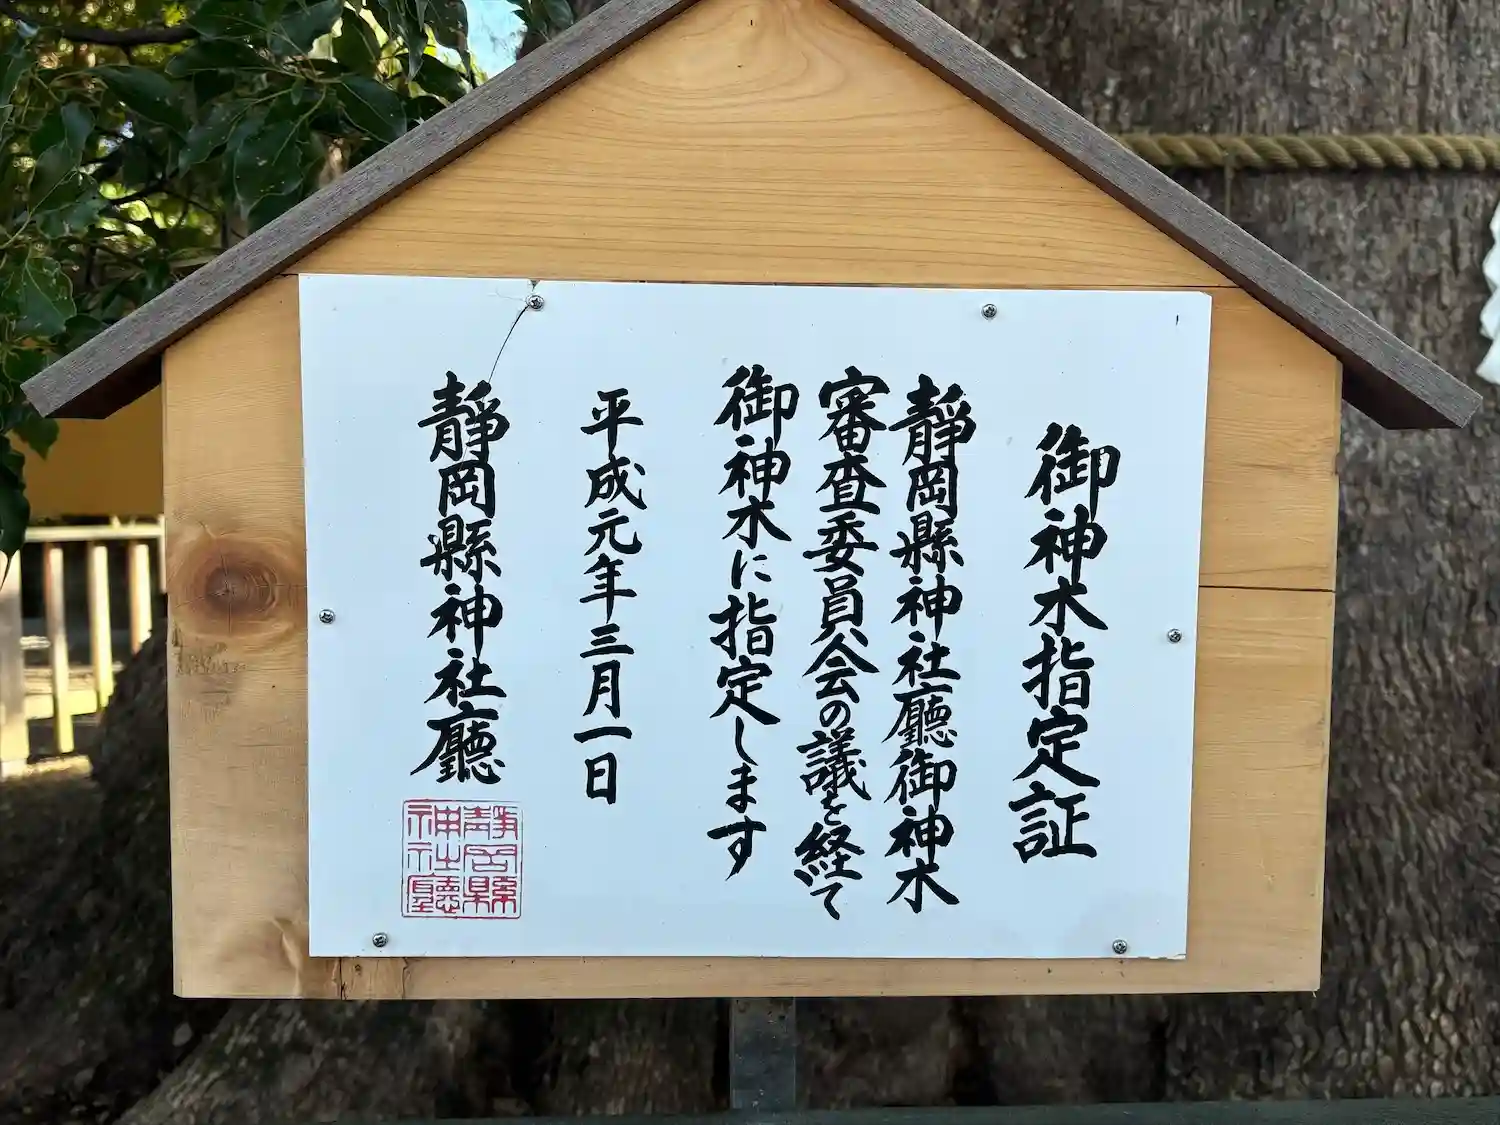 御神木指定証
靜岡縣神社廳御神木
審査委員会の議を経て
御神木に指定します
平成元年三月一日
靜岡縣神社廳
靜岡縣
神社廳